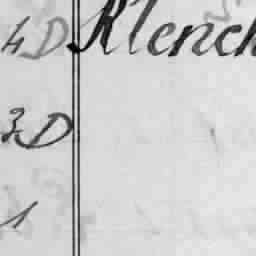 4 D Klench
3. D
1